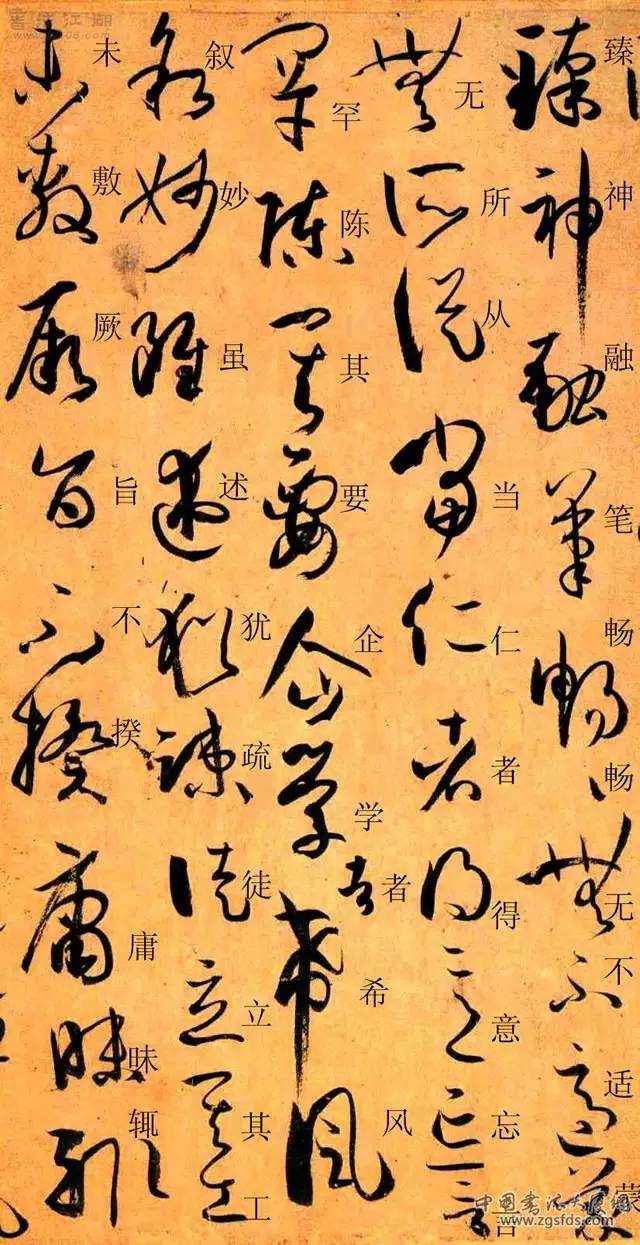 臻神融笔畅畅无不适蒙
无所从当仁者得意忘言
罕陈其要企学者希风
叙妙虽述犹疏徒立其工
未敷厥旨不揆庸昧辄
www.zgsfds.com